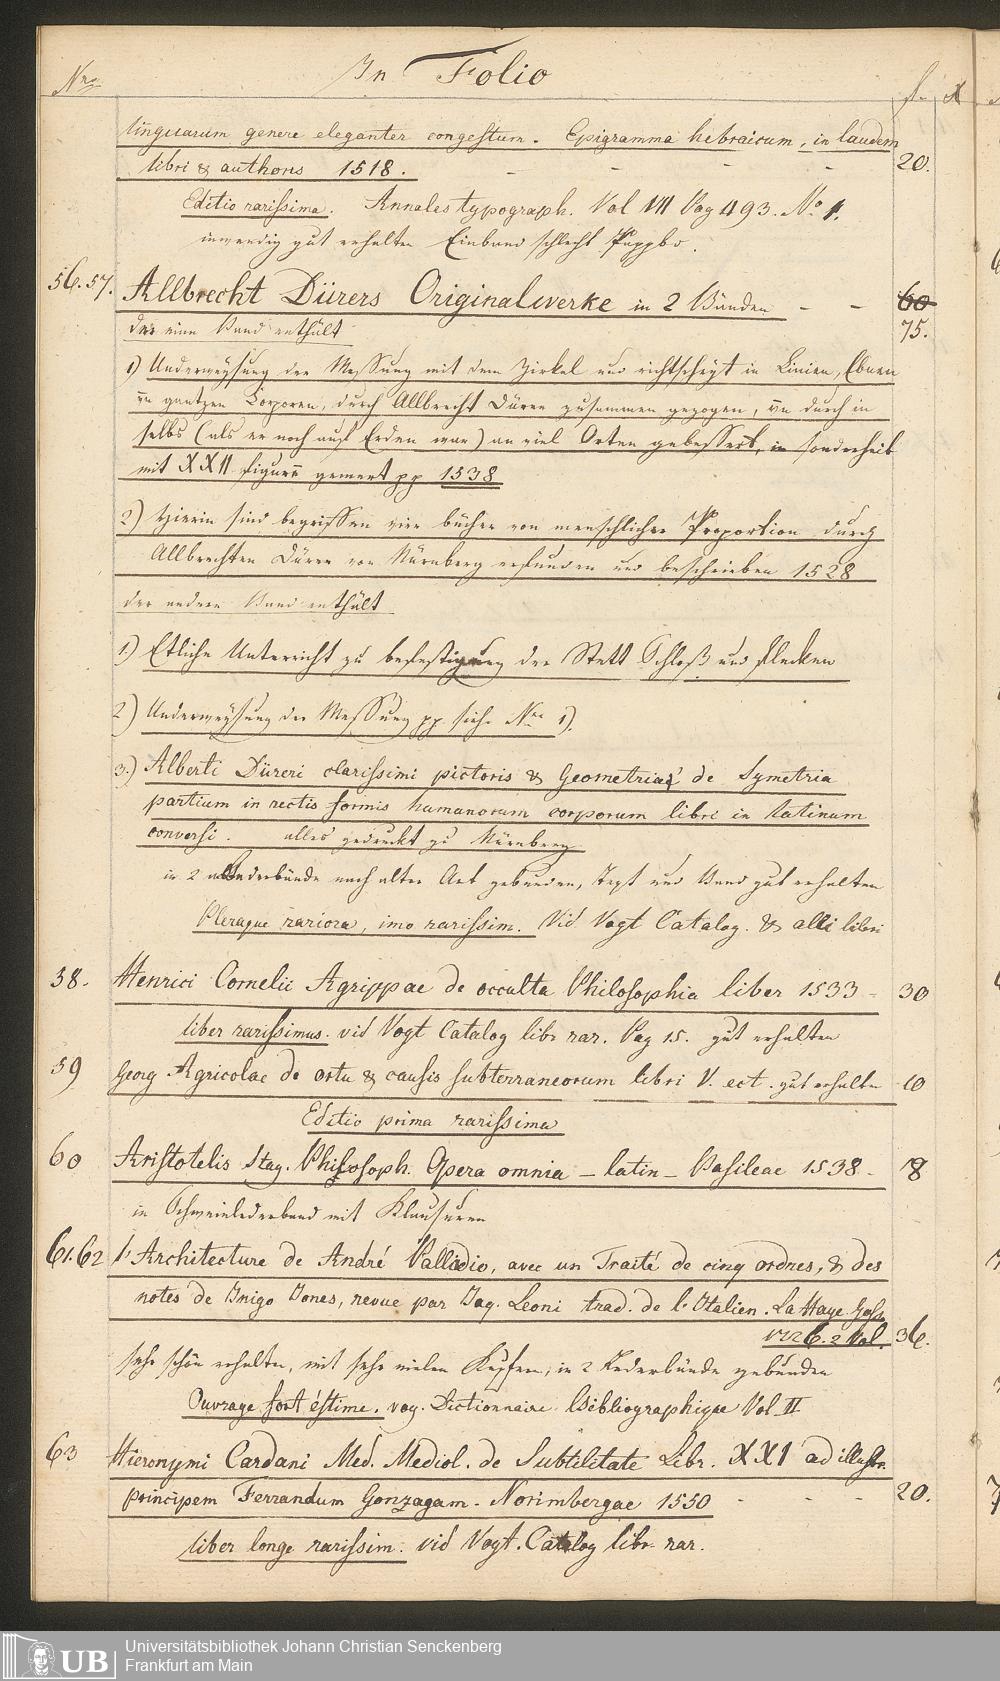 Nro In Folio f. X
linguarum genere eleganter congestum. Epigramma hebraicum, in laudem
libri & authoris 1518. – – – – 20.
Editio rarissima. Annales typograph. Vol VII Pag 493. No 1.
inwendig gut erhalten Einband schlecht Pappbd.
56.57. Allbrecht Dürers Originalwerke in 2 Bänden – – 60
75.
der eine Band enthält
1) Underweysung der Messung mit dem Zirkel und richtscheyt in Linien, Ebnen
uñ gantzen Corporen, durch Allbrecht Dürer zusamen gezogen, uñ durch in
selbs (als er noch auf Erden war) an viel Orten gebessert, in sonderheit
mit XXII figurñ gemert pp 1538
2) Hierin sind begriffen vier bücher von menschlicher Proportion durch
Allbrechten Dürer von Nürnberg erfunden und beschrieben 1528
der andere Band enthält
1.) Etliche Unterricht zu befestigung der Stett Schloß und flecken
2) Underweysung der Messung pp. siehe Nro 1).
3.) Alberti Düreri clarissimi pictoris & Geometriae de Symetria
partium in rectis formis humanorum corporum libri in latinum
conversi. alles gedruckt zu Nürnberg
in 2 Lederbände nach alter Art gebunden, Text und Band gut erhalten
Pleraque rariora, imo rarissim. Vid Vogt Catalog. & alii libri
58. Henrici Cornelii Agrippae de occulta Philosophia liber 1533 – 30
liber rarissimus. vid Vogt Catalog libr rar. Pag 15. gut erhalten
59 Georg Agricolae de ortu & causis subterraneorum libri V. ect. gut erhalten 10
Editio prima rarissima
60 Aristotelis Stag. Philosoph. Opera omnia – latin – Basileae 1538 – 18
in Schweinlederband mit Klausuren
61.62 l'Architecture de André Palladio, avec un Traité de cinq ordres, & des
notes de Inigo Jones, revue par Jaq. Leoni trad. de l'Italien. La Haye Goss.
1726. 2 Vol. 36.
sehr schön erhalten, mit sehr vielen Kupfern, in 2 Lederbände gebunden
Ouvrage fort éstime. voy. Dictionnaire Bibliographique Vol II
63 Hieronymi Cardani Med. Mediol. de Subtilitate Libr. XXI ad illustr.
principem Ferrandum Gonzagam – Norimbergae 1550 – – – 20.
liber longe rarissim. vid Vogt. Catalog libr. rar.
UB Universitätsbibliothek Johann Christian Senckenberg
Frankfurt am Main